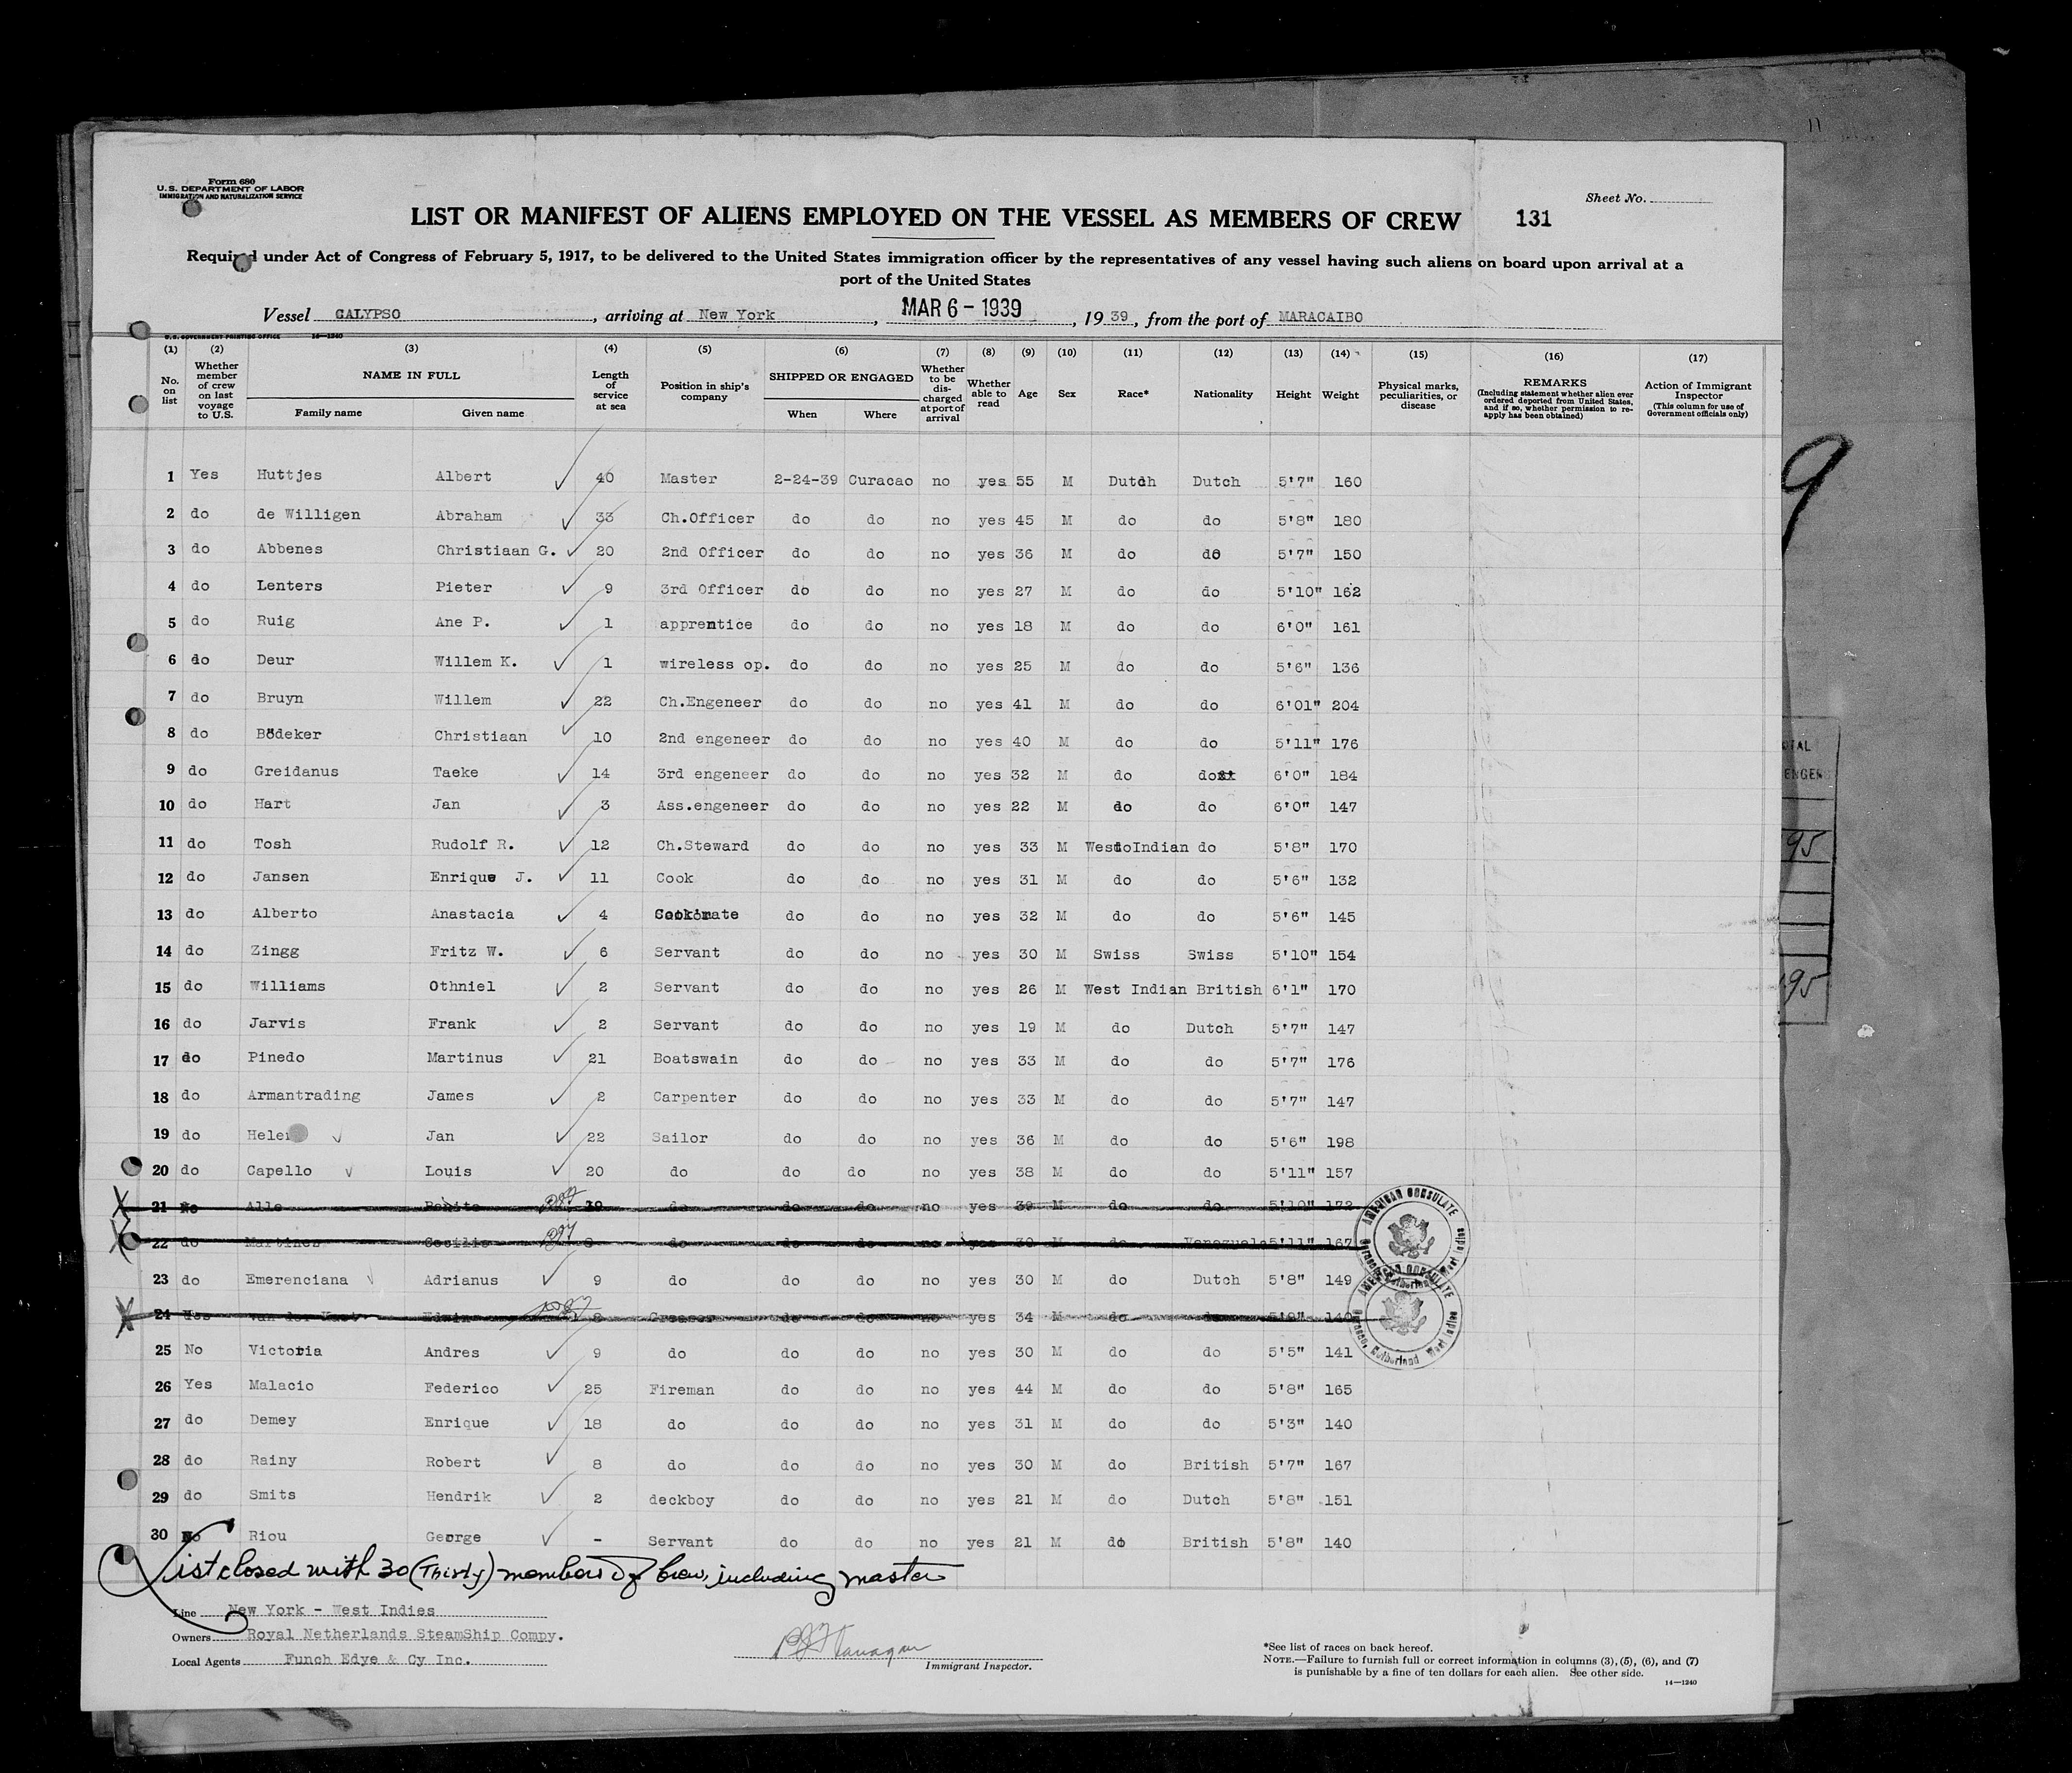 Form 680
U. S. DEPARTMENT OF LABOR
IMMIGRATION AND NATURALIZATION SERVICE
Sheet No.
LIST OR MANIFEST OF ALIENS EMPLOYED ON THE VESSEL AS MEMBERS OF CREW 131
Required under Act of Congress of February 5, 1917, to be delivered to the United States immigration officer by the representatives of any vessel having such aliens on board upon arrival at a
port of the United States
Vessel CALYPSO, arriving at New York, MAR 6 - 1939, 19 39, from the port of MARACAIBO
U. S. GOVERNMENT PRINTING OFFICE 14—1240
(1) (2) (3) (4) (5) (6) (7) (8) (9) (10) (11) (12) (13) (14) (15) (16) (17)
No. on list
Whether member of crew on last voyage to U.S.
NAME IN FULL
Family name
Given name
Length of service at sea
Position in ship's company
SHIPPED OR ENGAGED
When
Where
Whether to be discharged at port of arrival
Whether able to read
Age
Sex
Race*
Nationality
Height
Weight
Physical marks, peculiarities, or disease
REMARKS
(Including statement whether alien ever ordered deported from United States, and if so, whether permission to reapply has been obtained)
Action of Immigrant Inspector
(This column for use of Government officials only)
1 Yes Huttjes Albert 40 Master 2-24-39 Curacao no yes 55 M Dutch Dutch 5'7" 160
2 do de Willigen Abraham 33 Ch.Officer do do no yes 45 M do do 5'8" 180
3 do Abbenes Christiaan G. 20 2nd Officer do do no yes 36 M do do 5'7" 150
4 do Lenters Pieter 9 3rd Officer do do no yes 27 M do do 5'10" 162
5 do Ruig Ane P. 1 apprentice do do no yes 18 M do do 6'0" 161
6 do Deur Willem K. 1 wireless op. do do no yes 25 M do do 5'6" 136
7 do Bruyn Willem 22 Ch.Engeneer do do no yes 41 M do do 6'01" 204
8 do Bödeker Christiaan 10 2nd engeneer do do no yes 40 M do do 5'11" 176
9 do Greidanus Taeke 14 3rd engeneer do do no yes 32 M do do 6'0" 184
10 do Hart Jan 3 Ass.engeneer do do no yes 22 M do do 6'0" 147
11 do Tosh Rudolf R. 12 Ch.Steward do do no yes 33 M West Indian do 5'8" 170
12 do Jansen Enrique J. 11 Cook do do no yes 31 M do do 5'6" 132
13 do Alberto Anastacia 4 Cooksmate do do no yes 32 M do do 5'6" 145
14 do Zingg Fritz W. 6 Servant do do no yes 30 M Swiss Swiss 5'10" 154
15 do Williams Othniel 2 Servant do do no yes 26 M West Indian British 6'1" 170
16 do Jarvis Frank 2 Servant do do no yes 19 M do Dutch 5'7" 147
17 do Pinedo Martinus 21 Boatswain do do no yes 33 M do do 5'7" 176
18 do Armantrading James 2 Carpenter do do no yes 33 M do do 5'7" 147
19 do Jan 22 Sailor do do no yes 36 M do do 5'6" 198
20 do Capello Louis 20 do do do no yes 38 M do do 5'11" 157
21 No Alle Benito 19 do do do no yes 39 M do do 5'10" 172
22 do Martines Cecilio do do do no yes 30 M do Venezuela 5'11" 167
23 do Emerenciana Adrianus 9 do do do no yes 30 M do Dutch 5'8" 149
24 Yes Edwin 8 Greaser do do no yes 34 M do do 5'9" 140
25 No Victoria Andres 9 do do do no yes 30 M do do 5'5" 141
26 Yes Malacio Federico 25 Fireman do do no yes 44 M do do 5'8" 165
27 do Demey Enrique 18 do do do no yes 31 M do do 5'3" 140
28 do Rainy Robert 8 do do do no yes 30 M do British 5'7" 167
29 do Smits Hendrik 2 deckboy do do no yes 21 M do Dutch 5'8" 151
30 No Riou George - Servant do do no yes 21 M do British 5'8" 140
AMERICAN CONSULATE
Curacao, Netherland West Indies
AMERICAN CONSULATE
Curacao, Netherland West Indies
List closed with 30 (Thirty) members of crew, including master
Line New York - West Indies
Owners Royal Netherlands SteamShip Compy.
Local Agents Funch Edye & Cy Inc.
Immigrant Inspector.
*See list of races on back hereof.
NOTE.—Failure to furnish full or correct information in columns (3), (5), (6), and (7)
is punishable by a fine of ten dollars for each alien. See other side.
14—1240
9
95
95